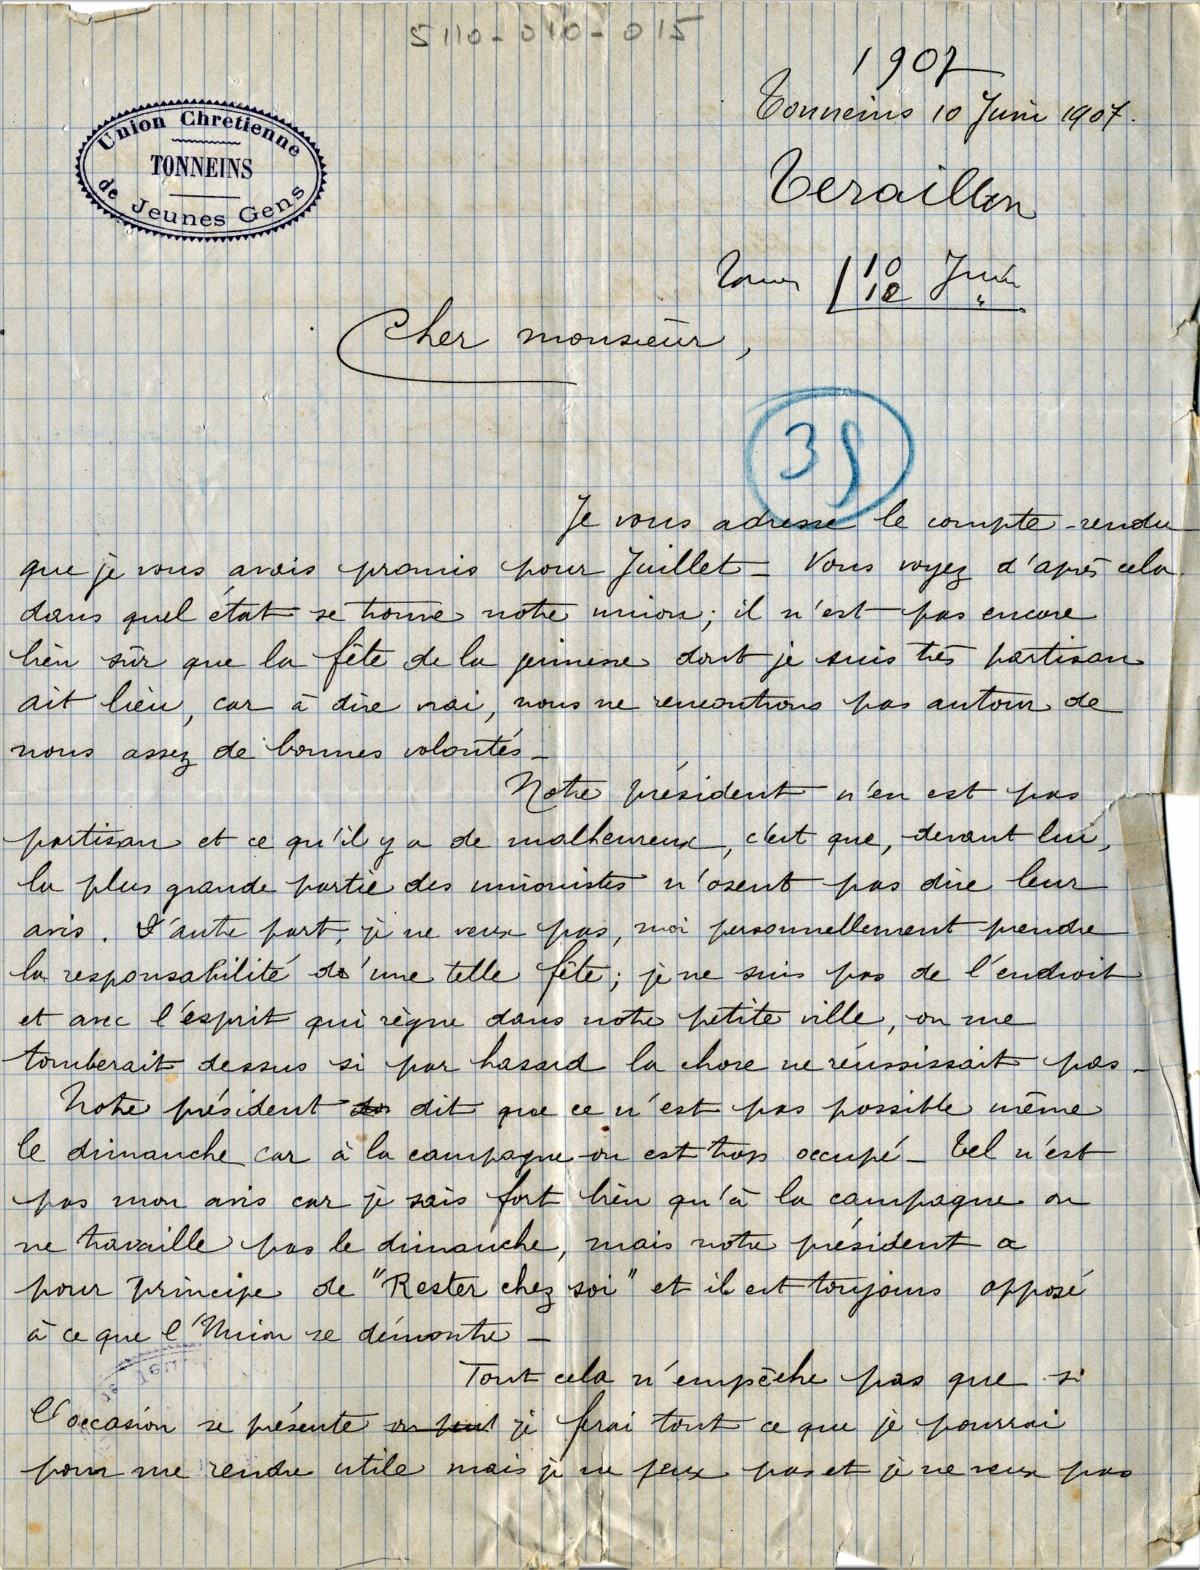 5110-010-015
1907
Tonneins 10 Juin 1907.
Union Chrétienne
TONNEINS
de Jeunes Gens
Teraillon
10 Juin
12 "
Cher monsieur,
35
Je vous adresse le compte-rendu
que je vous avais promis pour Juillet_ Vous voyez d'après cela
dans quel état se trouve notre union; il n'est pas encore
bien sûr que la fête de la jeunesse dont je suis très partisan
ait lieu, car à dire vrai, nous ne rencontrons pas autour de
nous assez de bonnes volontés_
Notre président n'en est pas
partisan et ce qu'il y a de malheureux, c'est que, devant lui,
la plus grande partie des unionistes n'osent pas dire leur
avis. D'autre part, je ne veux pas, moi personnellement prendre
la responsabilité d'une telle fête; je ne suis pas de l'endroit
et avec l'esprit qui règne dans notre petite ville, on me
tomberait dessus si par hasard la chose ne réussissait pas_
Notre président dit que ce n'est pas possible même
le dimanche car à la campagne on est trop occupé_ Tel n'est
pas mon avis car je sais fort bien qu'à la campagne on
ne travaille pas le dimanche, mais notre président a
pour principe de "Rester chez soi" et il est toujours opposé
à ce que l'Union se démontre_
Tout cela n'empêche pas que si
l'occasion se présente on peut je ferai tout ce que je pourrai
pour me rendre utile mais je ne peux pas et je ne veux pas